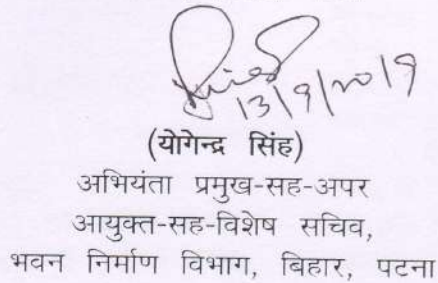 13/9/2019
(योगेन्द्र सिंह)
अभियंता प्रमुख-सह-अपर
आयुक्त-सह-विशेष सचिव,
भवन निर्माण विभाग, बिहार, पटना